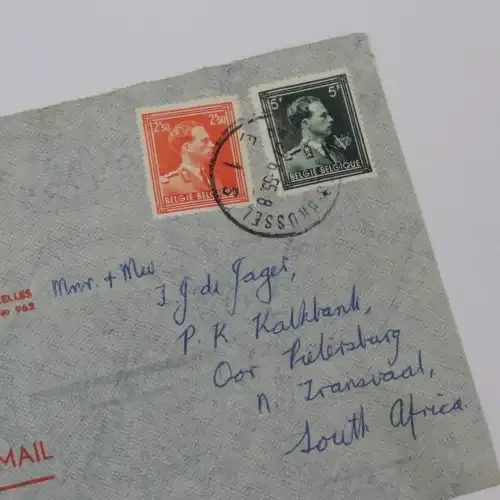 2F50 2F50
BELGIE BELGIQUE
5F 5F
BELGIE BELGIQUE
BRUSSEL
6-55 8
ELLES
No 962
Mnr. + Mev
I. J. de Jager,
P. K. Kalkbank,
Oor Pietersburg
N. Transvaal,
South Africa.
MAIL